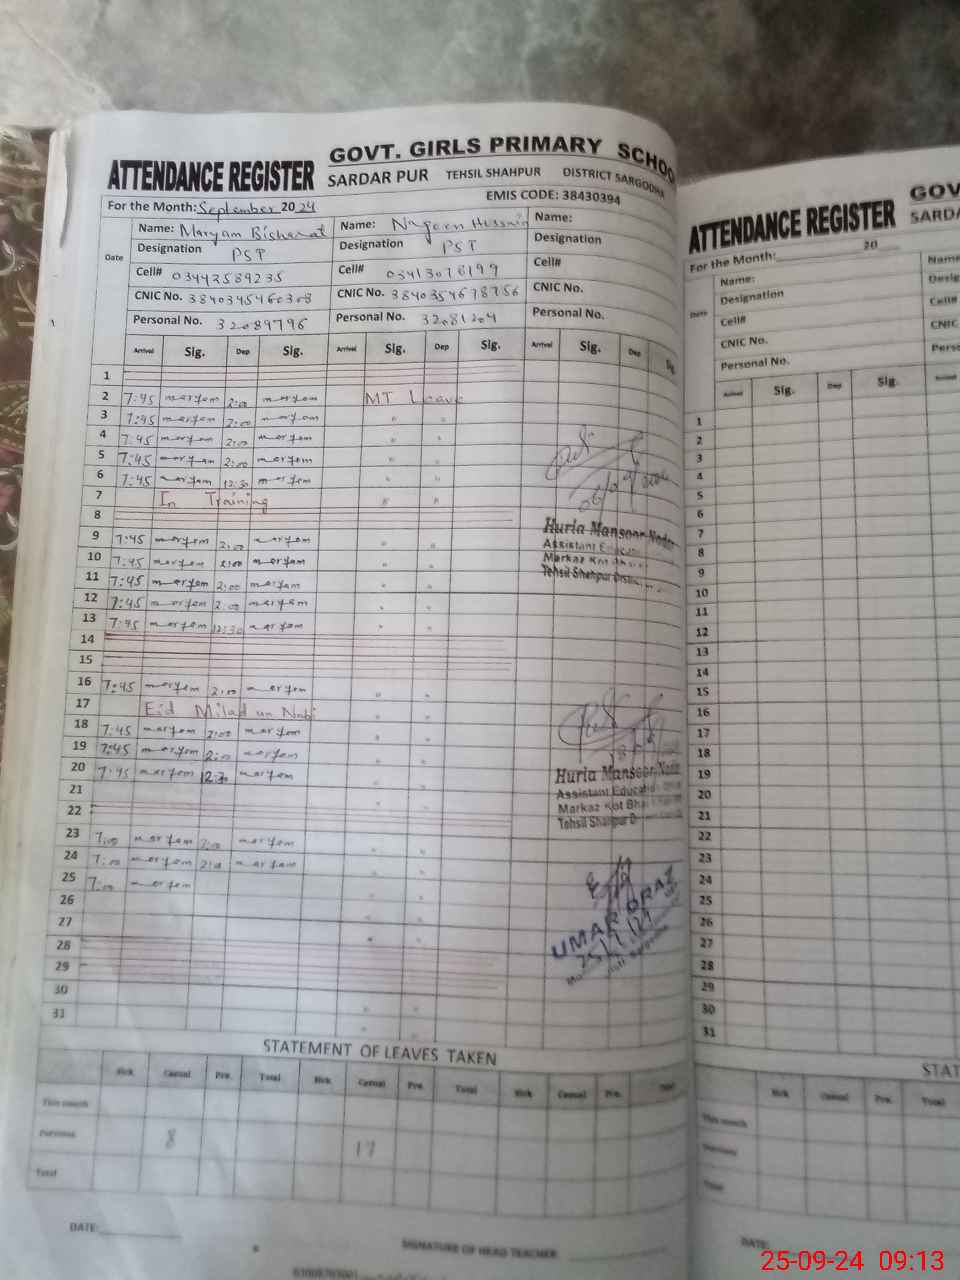 ATTENDANCE REGISTER
GOVT. GIRLS PRIMARY SCHOO
SARDAR PUR TEHSIL SHAHPUR DISTRICT SARGODHA
For the Month: September 2024 EMIS CODE: 38430394
Date
Name: Maryam Bisharat Name: Nageen Hussain Name:
Designation PST Designation PST Designation
Cell# 03442589235 Cell# 03413078199 Cell#
CNIC No. 3840345460308 CNIC No. 3840354678756 CNIC No.
Personal No. 32089796 Personal No. 32081204 Personal No.
Arrival Sig. Dep Sig. Arrival Sig. Dep Sig. Arrival Sig. Dep Sig.
1
2 7:45 maryam 2:00 maryam MT Leave
3 7:45 maryam 2:00 maryam " "
4 7:45 maryam 2:00 maryam " "
5 7:45 maryam 2:00 maryam " "
6 7:45 maryam 12:30 maryam " "
7 In Training " "
8
9 7:45 maryam 2:00 maryam " "
10 7:45 maryam 2:00 maryam " "
11 7:45 maryam 2:00 maryam " "
12 7:45 maryam 2:00 maryam " "
13 7:45 maryam 12:30 maryam " "
14
15
16 7:45 maryam 2:00 maryam " "
17 Eid Milad un Nabi " "
18 7:45 maryam 2:00 maryam " "
19 7:45 maryam 2:00 maryam " "
20 7:45 maryam 12:30 maryam " "
21 " "
22
23 7:00 maryam 2:00 maryam " "
24 7:00 maryam 2:00 maryam " "
25 7:00 maryam " "
26 " "
27 " "
28
29
30 " "
31 " "
Huria Mansoor
Assistant
Markaz Kot
Tehsil Shahpur
Huria Mansoor
Assistant
Markaz Kot
Tehsil Shahpur
UMAR DRAZ
STATEMENT OF LEAVES TAKEN
Sick Casual Pre. Total Sick Casual Pre. Total Sick Casual Pre. Total
This month
Previous 8 17
Total
DATE: SIGNATURE OF HEAD TEACHER
ATTENDANCE REGISTER
GOV
SARDA
For the Month: 20
Date
Name: Name
Designation Desig
Cell# Cell#
CNIC No. CNIC
Personal No. Perso
Arrival Sig. Dep Sig. Arrival
1
2
3
4
5
6
7
8
9
10
11
12
13
14
15
16
17
18
19
20
21
22
23
24
25
26
27
28
29
30
31
STAT
Sick Casual Pre. Total
This month
Previous
Total
DATE:
25-09-24 09:13